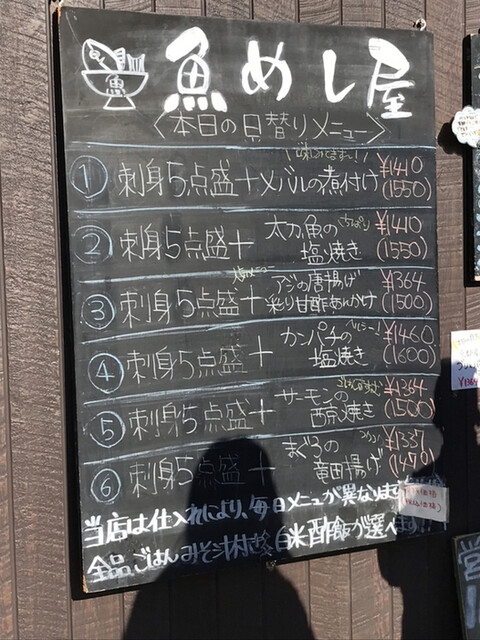 魚
魚めし屋
〈本日の日替りメニュー〉
① 刺身5点盛+メバルの煮付け ¥1410 (1550)
② 刺身5点盛+ 太刀魚の塩焼き ¥1410 (1550)
③ 刺身5点盛+ アジの唐揚げ彩り甘酢あんかけ ¥1364 (1500)
④ 刺身5点盛+ カンパチの塩焼き ¥1460 (1600)
⑤ 刺身5点盛+ サーモンの西京焼き ¥1364 (1500)
⑥ 刺身5点盛+ まぐろの竜田揚げ ¥1337 (1470)
当店は仕入れにより、毎日メニューが異なります
全品ごはんみそ汁付き 白米酢飯が選べます!!